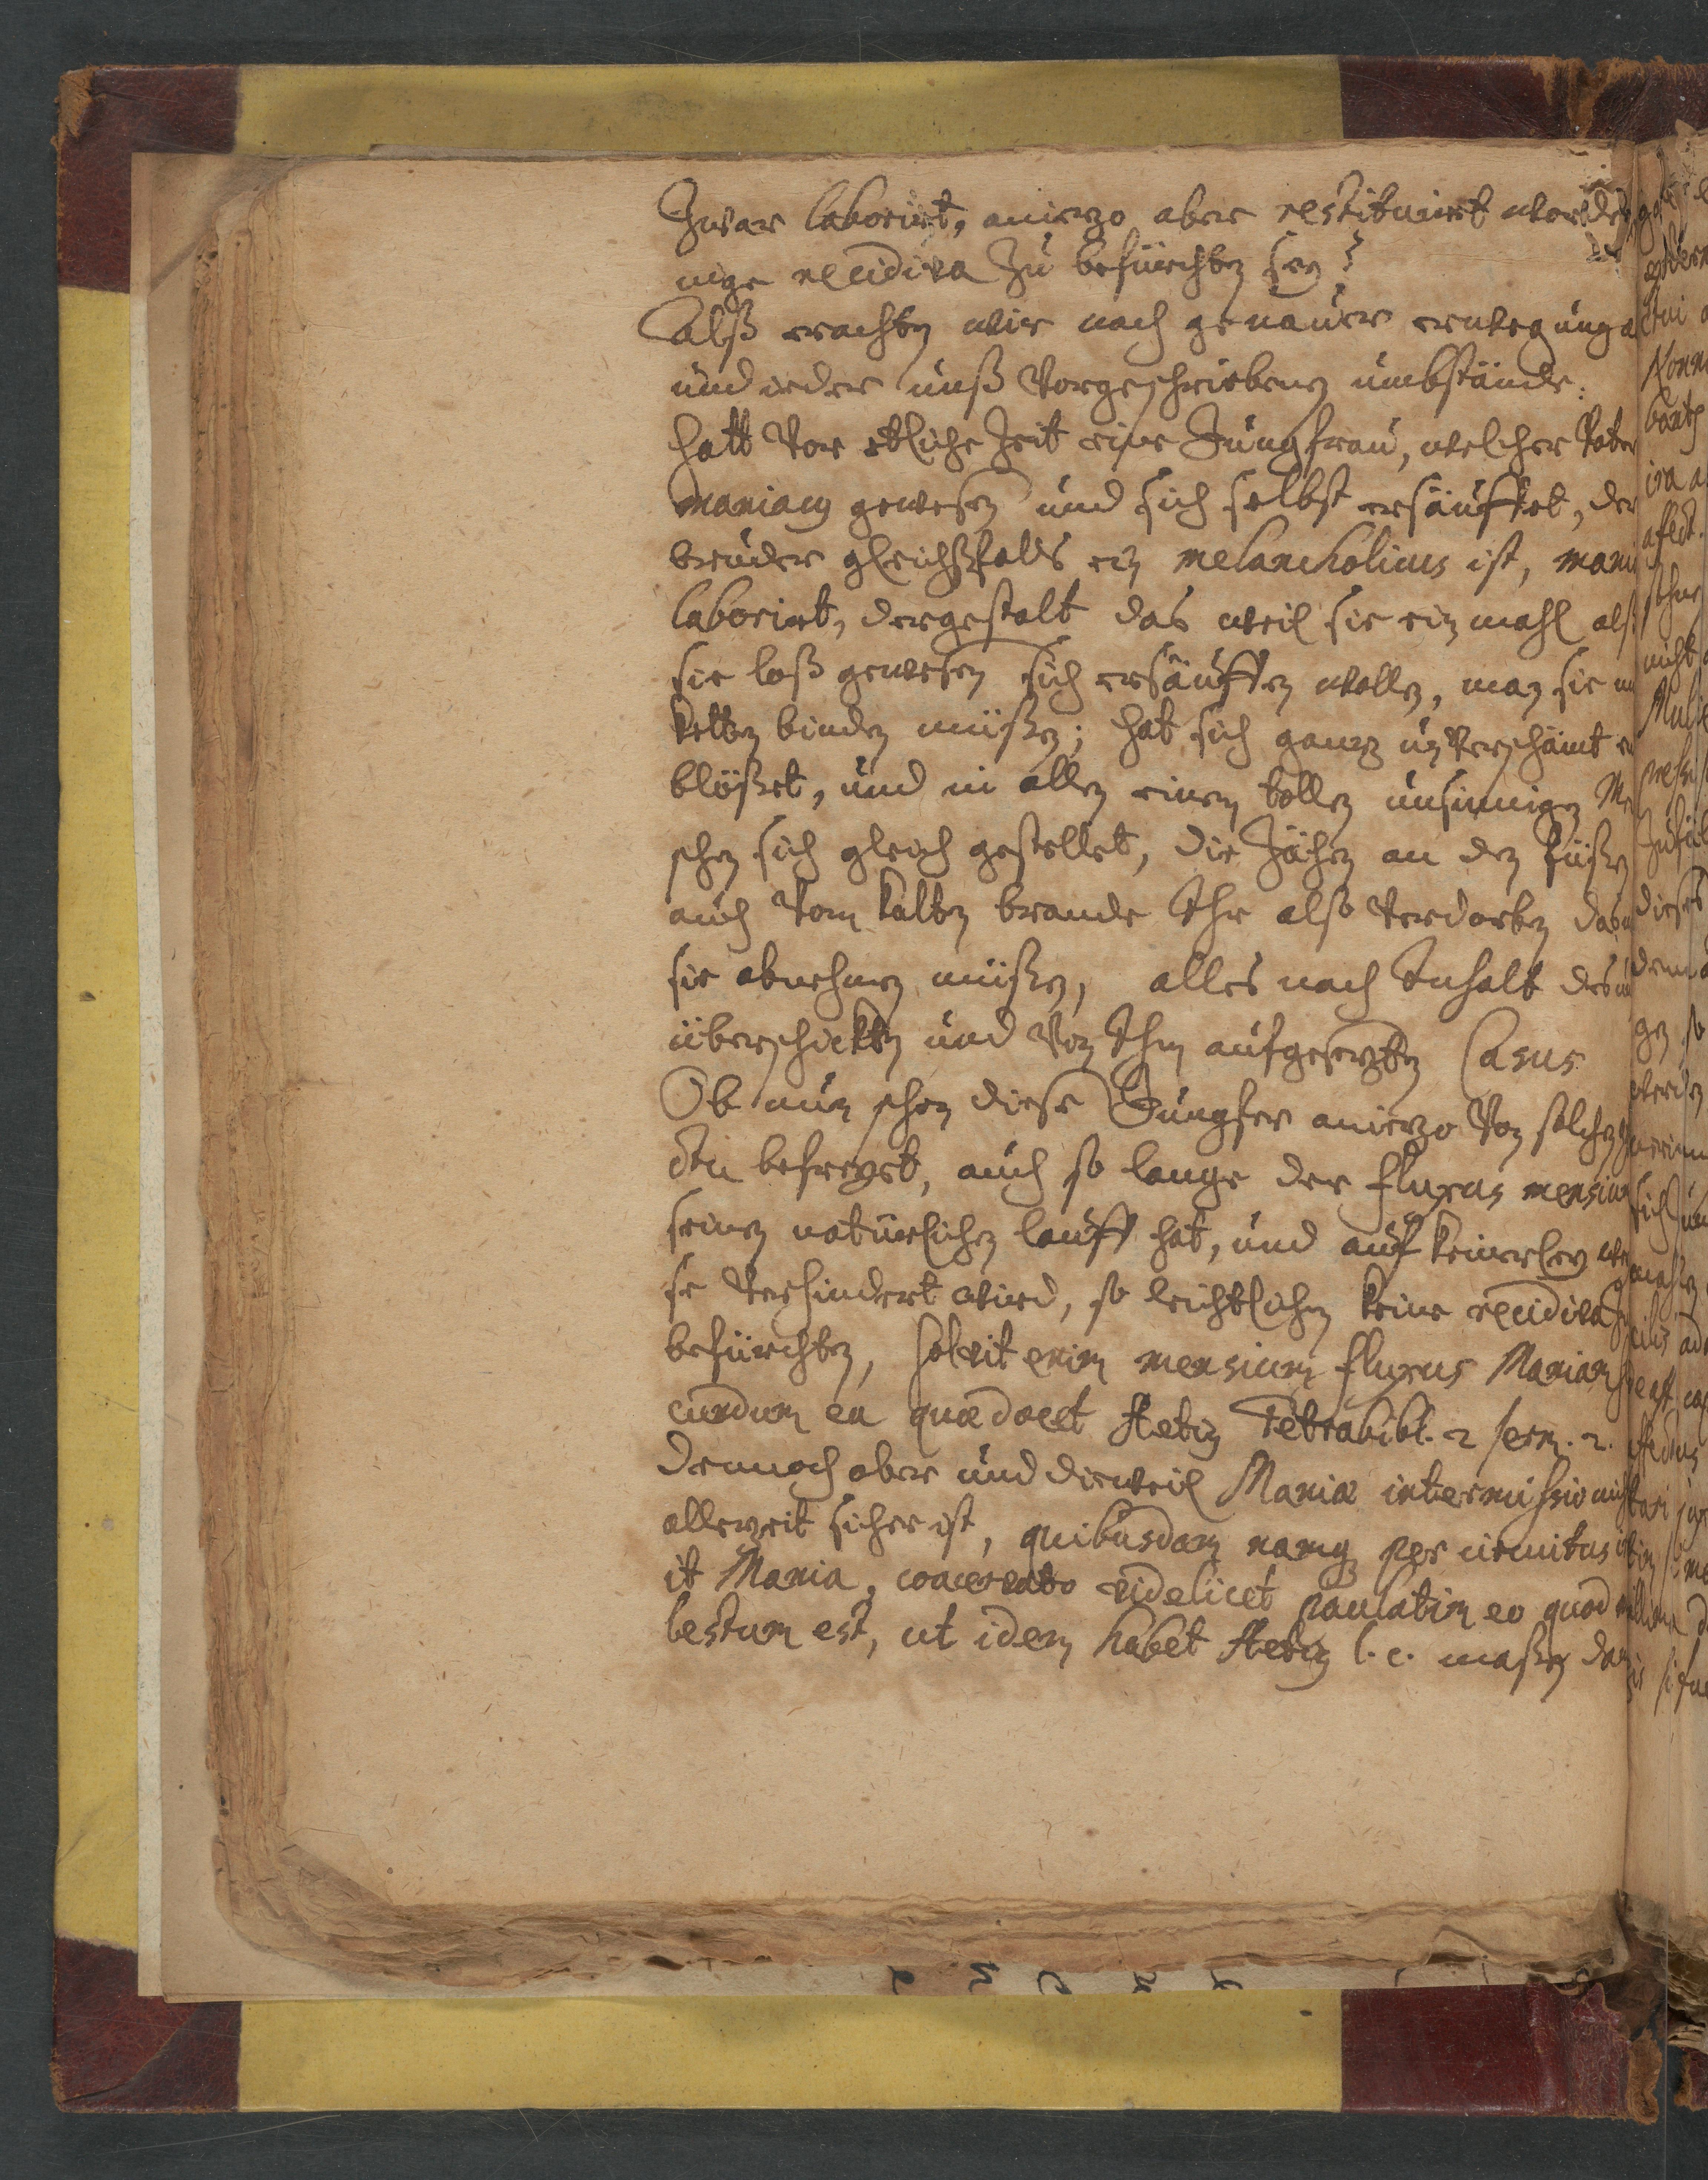 Zwar laborirt, aniezo aber restituiret worden
nige recidiva zu befürchten sey?
Alß erachten wir nach genauer erwegung a
und ieder unß Vorgeschriebenen umbstände:
hatt Vor etlicher Zeit eine Jungfrau, welcher Vater
maniacus gewesen und sich selbst ersäuffet, der
bruder gleichsfals ein melancholicus ist, mani
laborirt, dergestalt das weil sie ein mahl alß
sie loß gewesen sich ersäuffen wollen, man sie
ketten binden müßen; hat sich gantz unverschämt e
blößet, und in allen einem tollen unsinnigen Me
schen sich gleich gestellet, die Zähen an den füßen
auch Vom kalten brande Ihr also Verdorben das
sie abnehmen müßen, alles nach Inhalt des
überschickten und Von Ihm aufgesetzten Casus
Ob nun schon diese Jungfer aniezo Von solchen
befreyet, auch so lange der fluxus mensium
seinen natürlichen lauff hat, und auf keinerley we
se Verhindert wird, so leichtlichen keine recidiva zu
befürchten, solvit enim mensium fluxus Maniam se
cundum ea quæ docet Aetius Tetrabibl. 2 serm. 2.
Dennoch aber und dieweil Maniæ intermissio nicht
allezeit sicher ist, quibusdam namque per circuitus
it Mania, coacervato videlicet paulatim eo quod
lestum est, ut idem habet Aetius l. c. maßen dan